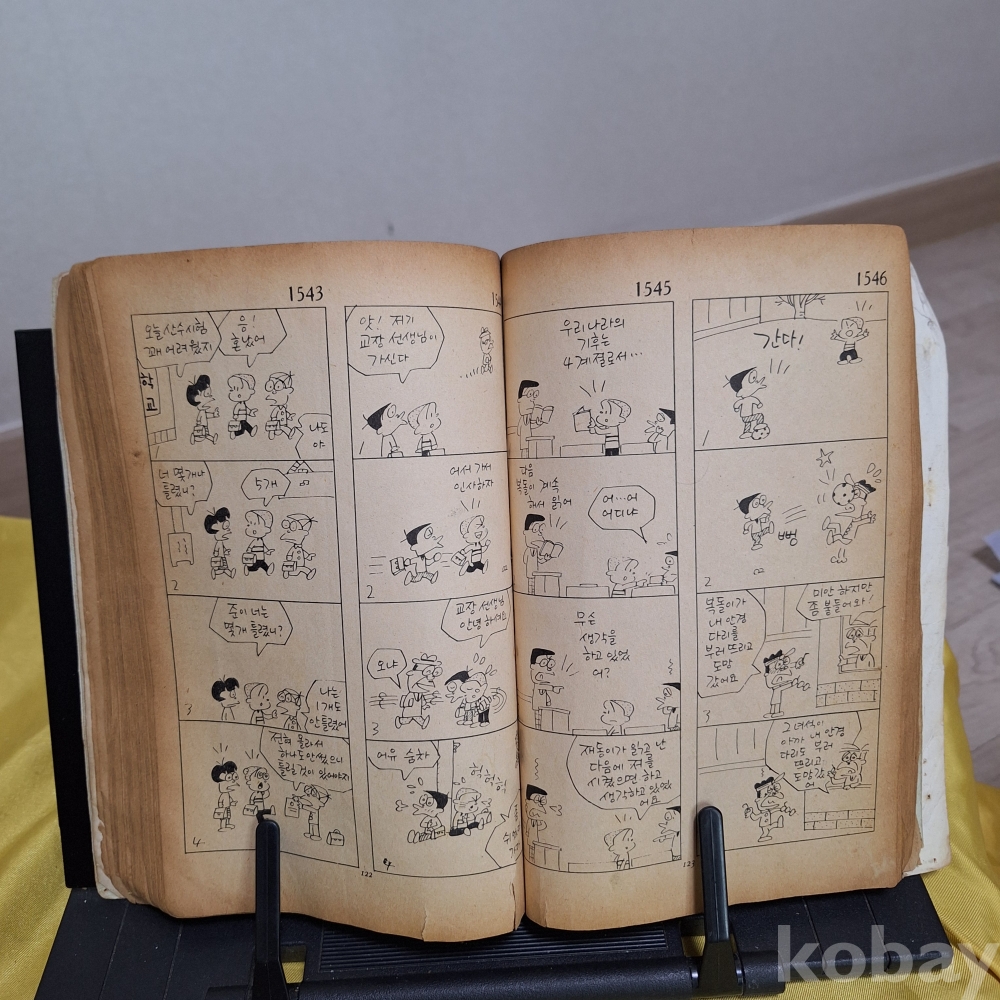 1543
오늘 산수시험
꽤 어려웠지
응!
혼났어
학교
나도
야
너 몇개나
틀렸니?
5개
2
준이 너는
몇개 틀렸니?
나는
1개도
안틀렸어
3
전혀 몰라서
하나도 안썼으니
틀릴것이 있어야지
4
앗! 저기
교장 선생님이
가신다
어서 가서
인사하자
2
교장 선생님
안녕하세요
오냐
3
어유 숨차
헉헉헉
4
122
1545
우리나라의
기후는
4계절로서…
다음
복돌이 계속
해서 읽어
어…어
어디냐
무슨
생각을
하고 있었
어?
재동이가 읽고 난
다음에 저를
시켰으면 하고
생각하고 있었
어요
1546
간다!
뻥
2
복돌이가
내 안경
다리를
부러뜨리고
도망
갔어요
미안 하지만
좀 붙들어와!
3
그 녀석이
아까 내 안경
다리도 부러
뜨리고
도망갔
어
kobay